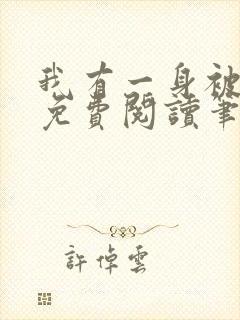 我有一身被
免費閱讀筆
許倬雲